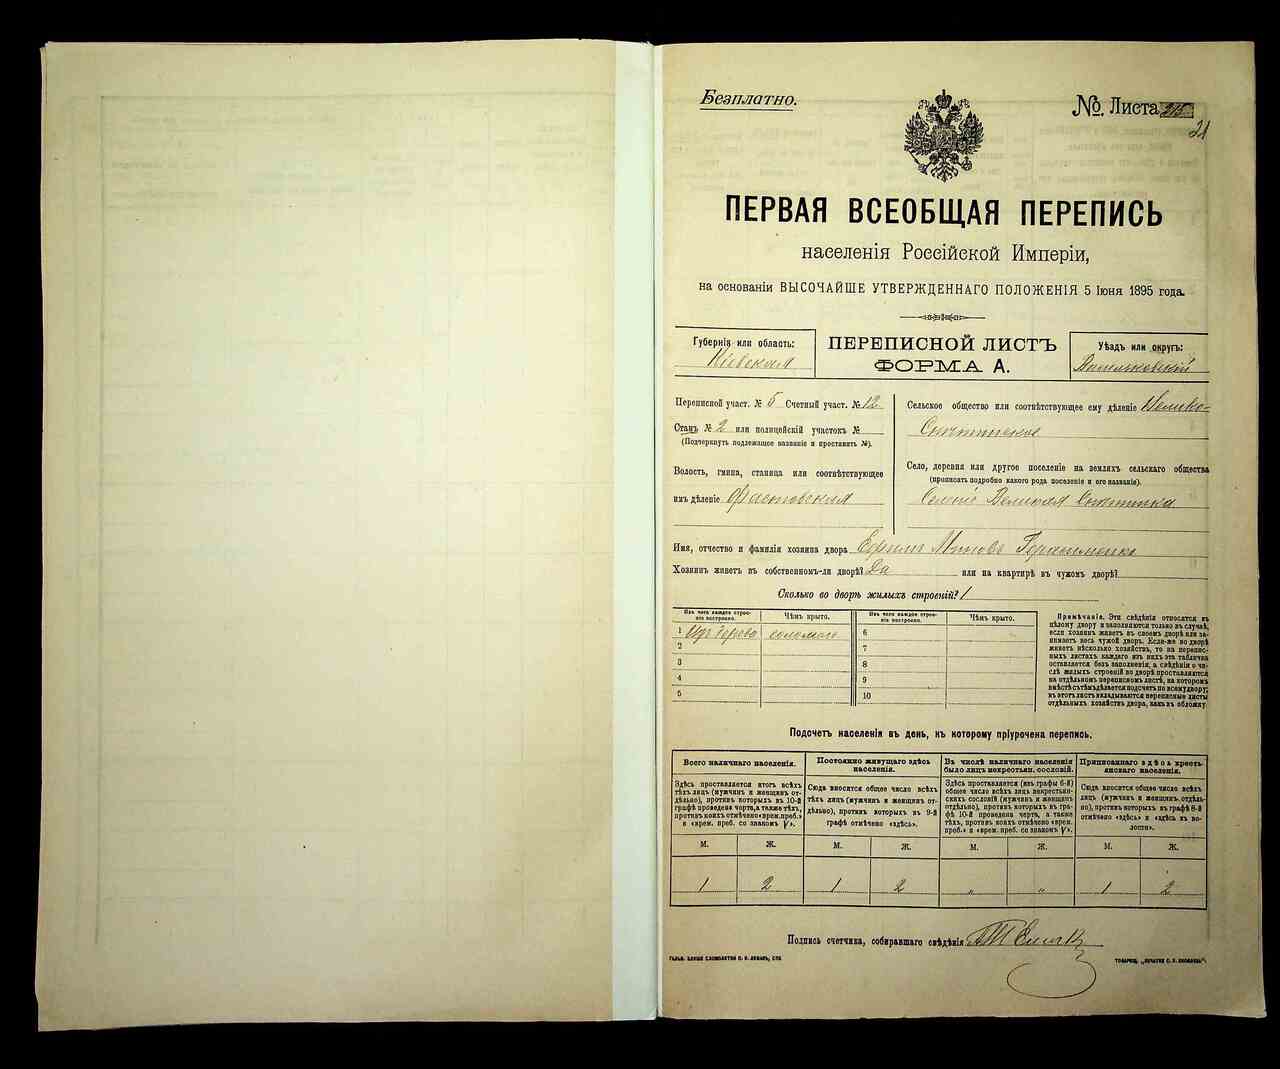 Безплатно.
№ Листа 215
21
ПЕРВАЯ ВСЕОБЩАЯ ПЕРЕПИСЬ
населенія Россійской Имперіи,
на основаніи ВЫСОЧАЙШЕ УТВЕРЖДЕННАГО ПОЛОЖЕНІЯ 5 Іюня 1895 года.
Губернія или область:
Кіевская
ПЕРЕПИСНОЙ ЛИСТЪ
ФОРМА А.
Уѣздъ или округъ:
Васильковскій
Переписной участ. № 5 Счетный участ. № 12
Станъ № 2 или полицейскій участокъ №
(Подчеркнуть подлежащее названіе и проставить №).
Волость, гмина, станица или соотвѣтствующее
имъ дѣленіе Фастовская
Сельское общество или соотвѣтствующее ему дѣленіе Велико-
Снитинское
Село, деревня или другое поселеніе на земляхъ сельскаго общества
(прописать подробно какого рода поселеніе и его названіе).
Великая Снитинка
Имя, отчество и фамилія хозяина двора Герасименко
Хозяинъ живетъ въ собственномъ-ли дворѣ? Да или на квартирѣ въ чужомъ дворѣ?
Сколько во дворѣ жилыхъ строеній? 1
Изъ чего каждое строе-
ніе построено.
Чѣмъ крыто.
1 Изъ дерева соломою
2
3
4
5
Изъ чего каждое строе-
ніе построено.
Чѣмъ крыто.
6
7
8
9
10
Примѣчаніе. Эти свѣдѣнія относятся къ
цѣлому двору и заполняются только въ случаѣ,
если хозяинъ живетъ въ своемъ дворѣ или за-
нимаетъ весь чужой дворъ. Если-же во дворѣ
живетъ нѣсколько хозяйствъ, то на перепис-
ныхъ листахъ каждаго изъ нихъ эта табличка
оставляется безъ заполненія, а свѣдѣнія о чи-
слѣ жилыхъ строеній во дворѣ проставляются
на отдѣльномъ переписномъ листѣ, на которомъ
вмѣстѣ съ тѣмъ дѣлается подсчетъ по всему двору;
въ этотъ листъ вкладываются переписные листы
отдѣльныхъ хозяйствъ двора, какъ въ обложку.
Подсчетъ населенія въ день, къ которому пріурочена перепись.
Всего наличнаго населенія.
Здѣсь проставляется итогъ всѣхъ
тѣхъ лицъ (мужчинъ и женщинъ от-
дѣльно), противъ которыхъ въ 10-й
графѣ проведена черта, а также тѣхъ,
противъ коихъ отмѣчено «врем. преб.»
и «врем. преб. со знакомъ V».
Постоянно живущаго здѣсь
населенія.
Сюда вносится общее число всѣхъ
тѣхъ лицъ (мужчинъ и женщинъ от-
дѣльно), противъ которыхъ въ 9-й
графѣ отмѣчено «здѣсь».
Въ числѣ наличнаго населенія
было лицъ некрестьян. сословій.
Здѣсь проставляется (изъ графы 6-й)
общее число всѣхъ лицъ некрестьян-
скихъ сословій (мужчинъ и женщинъ
отдѣльно), противъ которыхъ въ гра-
фѣ 10-й проведена черта, а также
тѣхъ, противъ коихъ отмѣчено «врем.
преб.» и «врем. преб. со знакомъ V».
Приписаннаго здѣсь кресть-
янскаго населенія.
Сюда вносится общее число всѣхъ
лицъ (мужчинъ и женщинъ отдѣль-
но), противъ которыхъ въ графѣ 8-й
отмѣчено «здѣсь» и «здѣсь въ во-
лости».
М. Ж. М. Ж. М. Ж. М. Ж.
1 2 1 2 „ „ 1 2
Подпись счетчика, собиравшаго свѣдѣнія